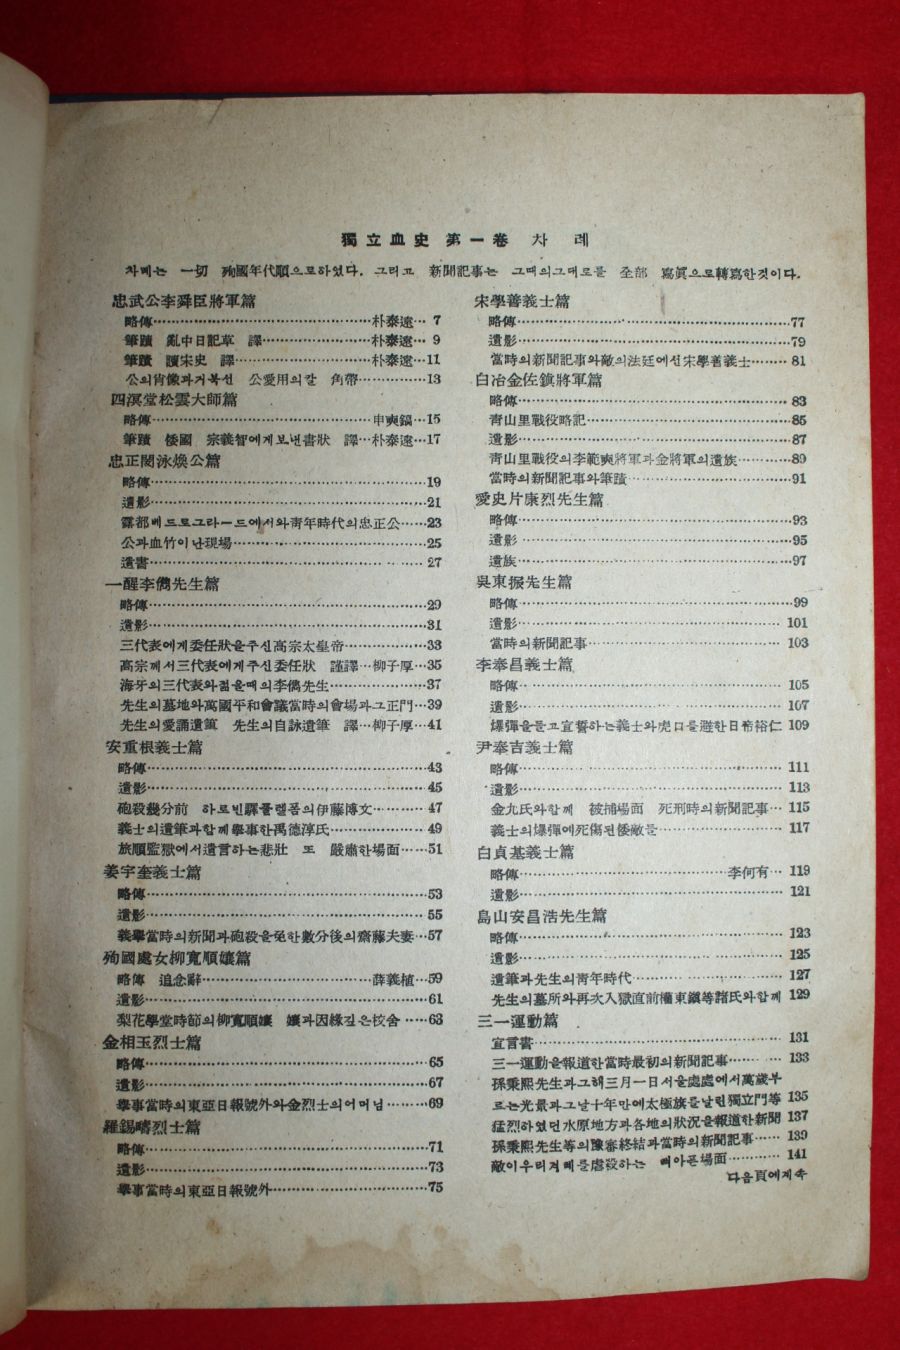 獨立血史 第一卷 차 례
차례는 一切 殉國年代順으로하였다. 그리고 新聞記事는 그때의그대로를 全部 寫眞으로轉寫한것이다.
忠武公李舜臣將軍篇
略傳 朴泰遠 7
筆蹟 亂中日記草 譯 朴泰遠 9
筆蹟 讀宋史 譯 朴泰遠 11
公의肖像과거북선 公愛用의칼 角帶 13
四溟堂松雲大師篇
略傳 申奭鎬 15
筆蹟 倭國 宗義智에게보낸書狀 譯 朴泰遠 17
忠正閔泳煥公篇
略傳 19
遺影 21
露都베드로그라ー드에서와靑年時代의忠正公 23
公과血竹이난現場 25
遺書 27
一醒李儁先生篇
略傳 29
遺影 31
三代表에게委任狀을주신高宗太皇帝 33
高宗께서三代表에게주신委任狀 謹譯 柳子厚 35
海牙의三代表와젊을때의李儁先生 37
先生의墓地와萬國平和會議當時의會場과그正門 39
先生의愛誦遺筆 先生의自詠遺筆 譯 柳子厚 41
安重根義士篇
略傳 43
遺影 45
砲殺幾分前 하르빈驛홈의伊藤博文 47
義士의遺筆과함께擧事한禹德淳氏 49
旅順監獄에서遺言하는悲壯 또 嚴肅한場面 51
姜宇奎義士篇
略傳 53
遺影 55
義擧當時의新聞과砲殺을免한數分後의齋藤夫妻 57
殉國處女柳寬順孃篇
略傳 追念辭 薛義植 59
遺影 61
梨花學堂時節의柳寬順孃 孃과因緣깊은校舍 63
金相玉烈士篇
略傳 65
遺影 67
擧事當時의東亞日報號外와金烈士의어머님 69
羅錫疇烈士篇
略傳 71
遺影 73
擧事當時의東亞日報號外 75
宋學善義士篇
略傳 77
遺影 79
當時의新聞記事와敵의法廷에선宋學善義士 81
白冶金佐鎭將軍篇
略傳 83
靑山里戰役略記 85
遺影 87
靑山里戰役의李範奭將軍과金將軍의遺族 89
當時의新聞記事와筆蹟 91
愛史片康烈先生篇
略傳 93
遺影 95
遺族 97
吳東振先生篇
略傳 99
遺影 101
當時의新聞記事 103
李奉昌義士篇
略傳 105
遺影 107
爆彈을들고宣誓하는義士와虎口를避한日帝裕仁 109
尹奉吉義士篇
略傳 111
遺影 113
金九氏와함께 被捕場面 死刑時의新聞記事 115
義士의爆彈에死傷된倭敵들 117
白貞基義士篇
略傳 李何有 119
遺影 121
島山安昌浩先生篇
略傳 123
遺影 125
遺筆과先生의靑年時代 127
先生의墓所와再次入獄直前權東鎭等諸氏와함께 129
三一運動篇
宣言書 131
三一運動을報道한當時最初의新聞記事 133
孫秉熙先生과그해三月一日서울處處에서萬歲부
르는光景과그날十年만에太極旗를날린獨立門等 135
猛烈하였던水原地方과各地의狀況을報道한新聞 137
孫秉熙先生等의豫審終結과當時의新聞記事 139
敵이우리겨레를虐殺하는 뼈아픈場面 141
다음頁에계속